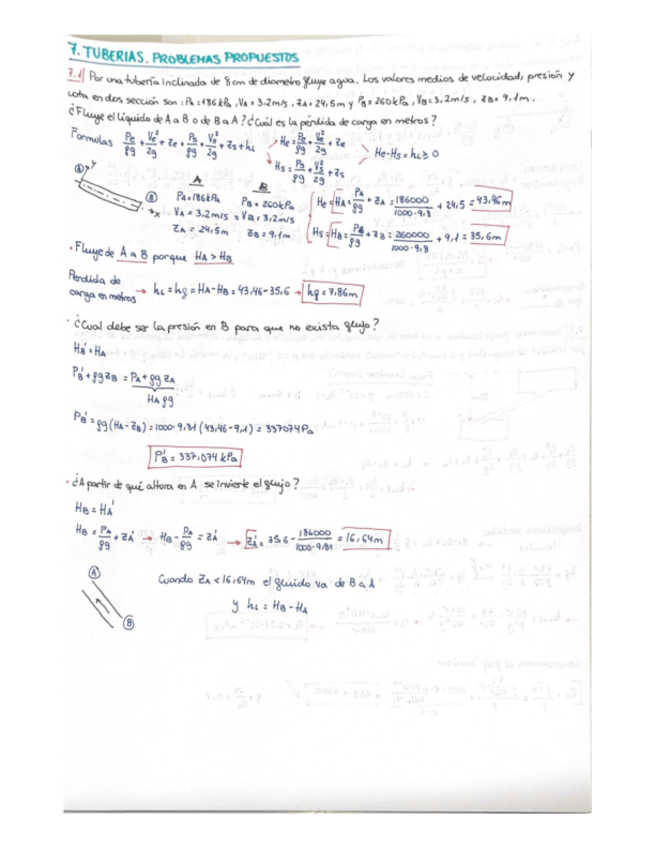 7. TUBERIAS. PROBLEMAS PROPUESTOS
7.1 Por una tubería inclinada de 8cm de diametro fluye agua. Los valores medios de velocidad, presión y
cota en dos sección son: PA=186kPa, VA=3.2m/s, ZA=24,5m y PB=260kPa, VB=3,2m/s, ZB=9,1m.
¿Fluye el líquido de A a B o de B a A? ¿Cuál es la pérdida de carga en metros?
Formulas Pe/ρg + Ve²/2g + Ze = Ps/ρg + Vs²/2g + Zs + hL → He = Pe/ρg + Ve²/2g + Ze
Hs = Ps/ρg + Vs²/2g + Zs
He-Hs = hL ≥ 0
A B
PA=186kPa PB=260kPa
VA = 3,2m/s = VB = 3,2m/s
ZA = 24,5m ZB = 9,1m
He = HA = PA/ρg + ZA = 186000/1000·9,8 + 24,5 = 43,46m
Hs = HB = PB/ρg + ZB = 260000/1000·9,8 + 9,1 = 35,6m
· Fluye de A a B porque HA > HB
Perdida de
carga en metros → hL = hg = HA-HB = 43,46-35,6 → hg = 7,86m
· ¿Cual debe ser la presión en B para que no exista flujo?
HB' = HA
PB' + ρg ZB = PA + ρg ZA
HA ρg
PB' = ρg (HA-ZB) = 1000·9,81 (43,46-9,1) = 337074Pa
PB' = 337,074 kPa
· ¿A partir de qué altura en A se invierte el flujo?
HB = HA'
HB = PA/ρg + ZA' → HB - PA/ρg = ZA' → ZA' = 35,6 - 186000/1000·9,81 = 16,64m
A
Cuando ZA < 16,64m el fluido va de B a A
y hL = HB - HA
B